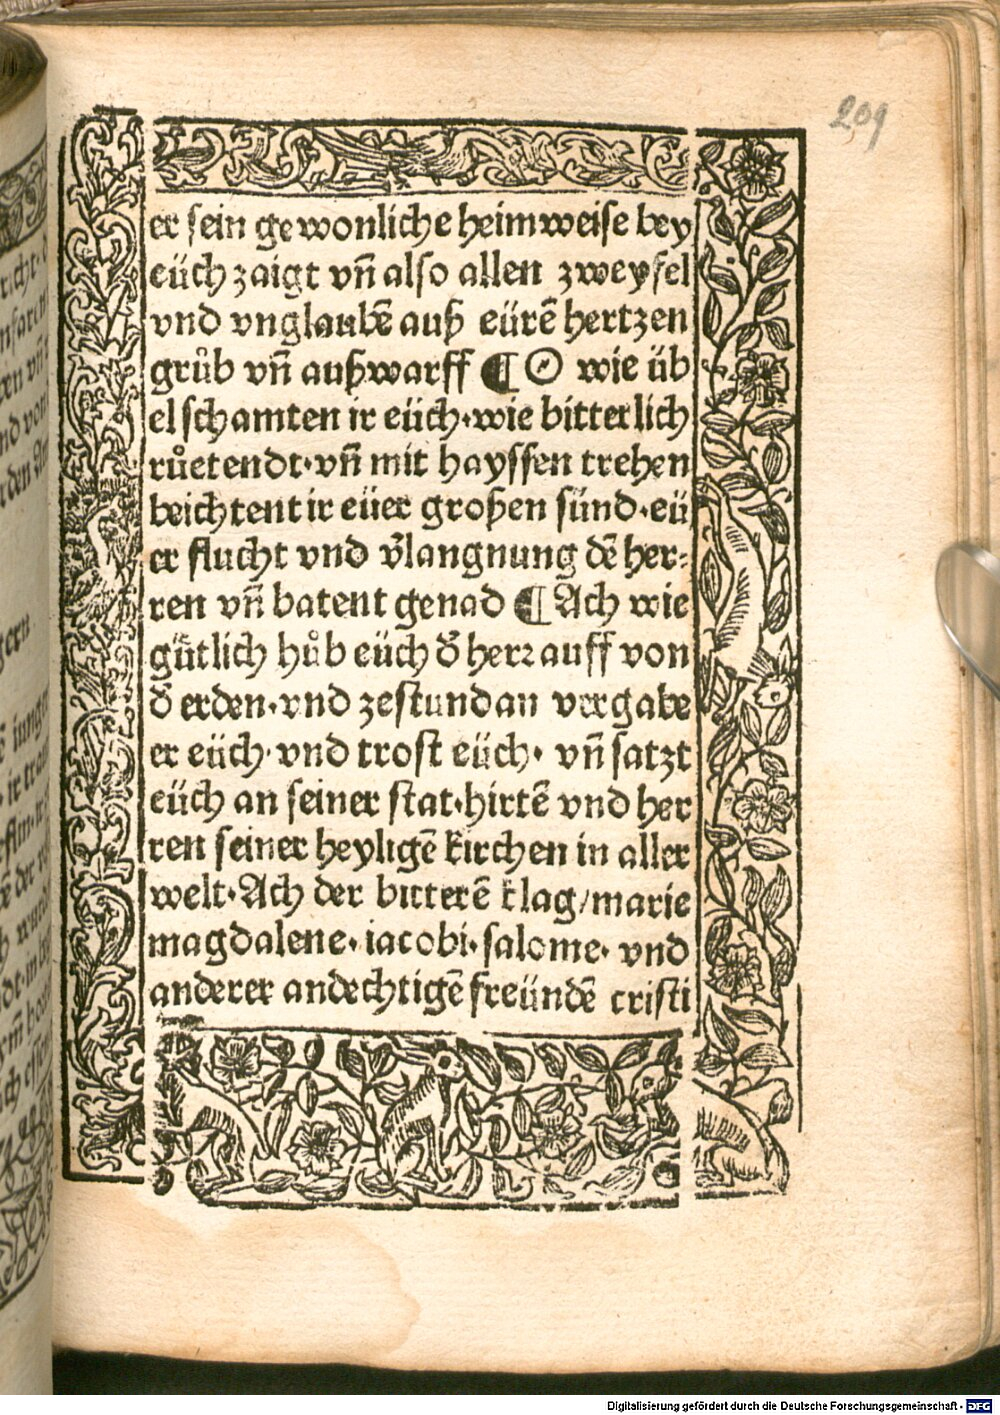 209
er sein gewonliche heimweise bey
eüch zaigt vn̄ also allen zweyfel
vnd vnglaubē auß eürē hertzen
grůb vn̄ außwarff ¶ O wie üb
el schamten ir eüch·wie bitterlich
růetendt·vn̄ mit hayssen trehen
beichtent ir eüer großen sünd·eü
er flucht vnd v̓langnung dē her⸗
ren vn̄ batent genad ¶ Ach wie
gütlich hůb eüch d̓ herꝛ auff von
d̓ erden·vnd zestund an vergabe
er eüch·vnd trost eüch· vn̄ satzt
eüch an seiner stat·hirtē vnd her
ren seiner heyligē kirchen in aller
welt·Ach der bitterē klag/marie
magdalene·iacobi·salome· vnd
anderer andechtigē freündē cristi
Digitalisierung gefördert durch die Deutsche Forschungsgemeinschaft - DFG